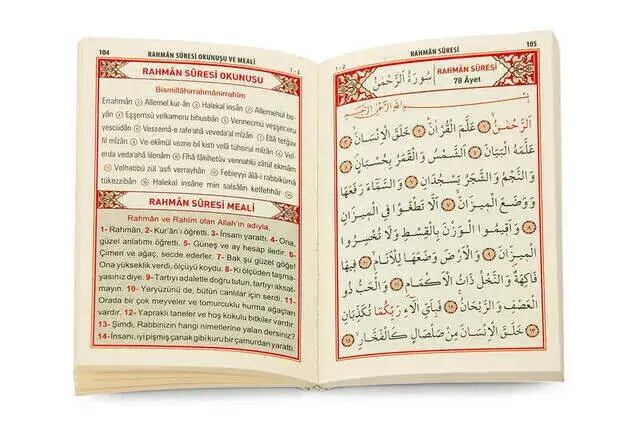 104
RAHMAN SÛRESİ OKUNUŞU VE MEALİ
١٠٤
RAHMAN SÛRESİ OKUNUŞU
Bismillâhirrahmânirrahîm
Errahmân ① Allemel kur'ân ② Halekal insân ③ Allemehül be-
yân ④ Eşşemsü velkameru bihusbân ⑤ Vennecmü veşşeceru
yescüdân ⑥ Vessemâ-e rafe'ahâ veveda'al mîzân ⑦ Ellâ tetğav
fil mîzân ⑧ Ve-ekîmül vezne bil kisti velâ tühsirul mîzân ⑨ Vel-
erda veda'ahâ lilenâm ⑩ Fîhâ fâkihetüv vennahlü zâtül ekmâm
⑪ Velhabbü zül 'asfi verrayhân ⑫ Febieyyi âlâ-i rabbikümâ
tükezzibân ⑬ Halekal insâne min salsâlin kelfehhâr ⑭
RAHMÂN SÛRESİ MEALİ
Rahmân ve Rahîm olan Allah'ın adıyla,
1- Rahmân, 2- Kur'ân'ı öğretti. 3- İnsanı yarattı. 4- Ona,
güzel anlatımı öğretti. 5- Güneş ve ay hesap iledir. 6-
Çimen ve ağaç, secde ederler. 7- Bak şu güzel göğe!
Ona yükseklik verdi, ölçüyü koydu. 8- Ki ölçüden taşma-
yasınız diye. 9- Tartıyı adaletle doğru tutun, tartıyı aksat-
mayın. 10- Yeryüzünü de, bütün canlılar için serdi. 11-
Orada bir çok meyveler ve tomurcuklu hurma ağaçları
vardır. 12- Yapraklı taneler ve hoş kokulu bitkiler vardır.
13- Şimdi, Rabbinizin hangi nimetlerine yalan dersiniz?
14- İnsanı, iyi pişmiş çanak gibi kuru bir çamurdan yarattı.
١٠٥
RAHMÂN SÛRESİ
105
سُورَةُ الرَّحْمٰنِ
RAHMÂN SÛRESİ
78 Âyet
بِسْمِ اللهِ الرَّحْمٰنِ الرَّحِيمِ
اَلرَّحْمٰنُ ﴿١﴾ عَلَّمَ الْقُرْاٰنَ ﴿٢﴾ خَلَقَ الْاِنْسَانَ ﴿٣﴾
عَلَّمَهُ الْبَيَانَ ﴿٤﴾ اَلشَّمْسُ وَ الْقَمَرُ بِحُسْبَانٍ ﴿٥﴾
وَ النَّجْمُ وَ الشَّجَرُ يَسْجُدَانِ ﴿٦﴾ وَ السَّمَٓاءَ رَفَعَهَا
وَ وَضَعَ الْمِيزَانَ ﴿٧﴾ اَلَّا تَطْغَوْا فِي الْمِيزَانِ
﴿٨﴾ وَ اَقِيمُوا الْوَزْنَ بِالْقِسْطِ وَلَا تُخْسِرُوا
الْمِيزَانَ ﴿٩﴾ وَ الْاَرْضَ وَضَعَهَا لِلْاَنَامِ ﴿١٠﴾ فِيهَا
فَاكِهَةٌ وَ النَّخْلُ ذَاتُ الْاَكْمَامِ ﴿١١﴾ وَ الْحَبُّ ذُو
الْعَصْفِ وَ الرَّيْحَانُ ﴿١٢﴾ فَبِاَيِّ اٰلَٓاءِ رَبِّكُمَا تُكَذِّبَانِ
﴿١٣﴾ خَلَقَ الْاِنْسَانَ مِنْ صَلْصَالٍ كَالْفَخَّارِ ﴿١٤﴾